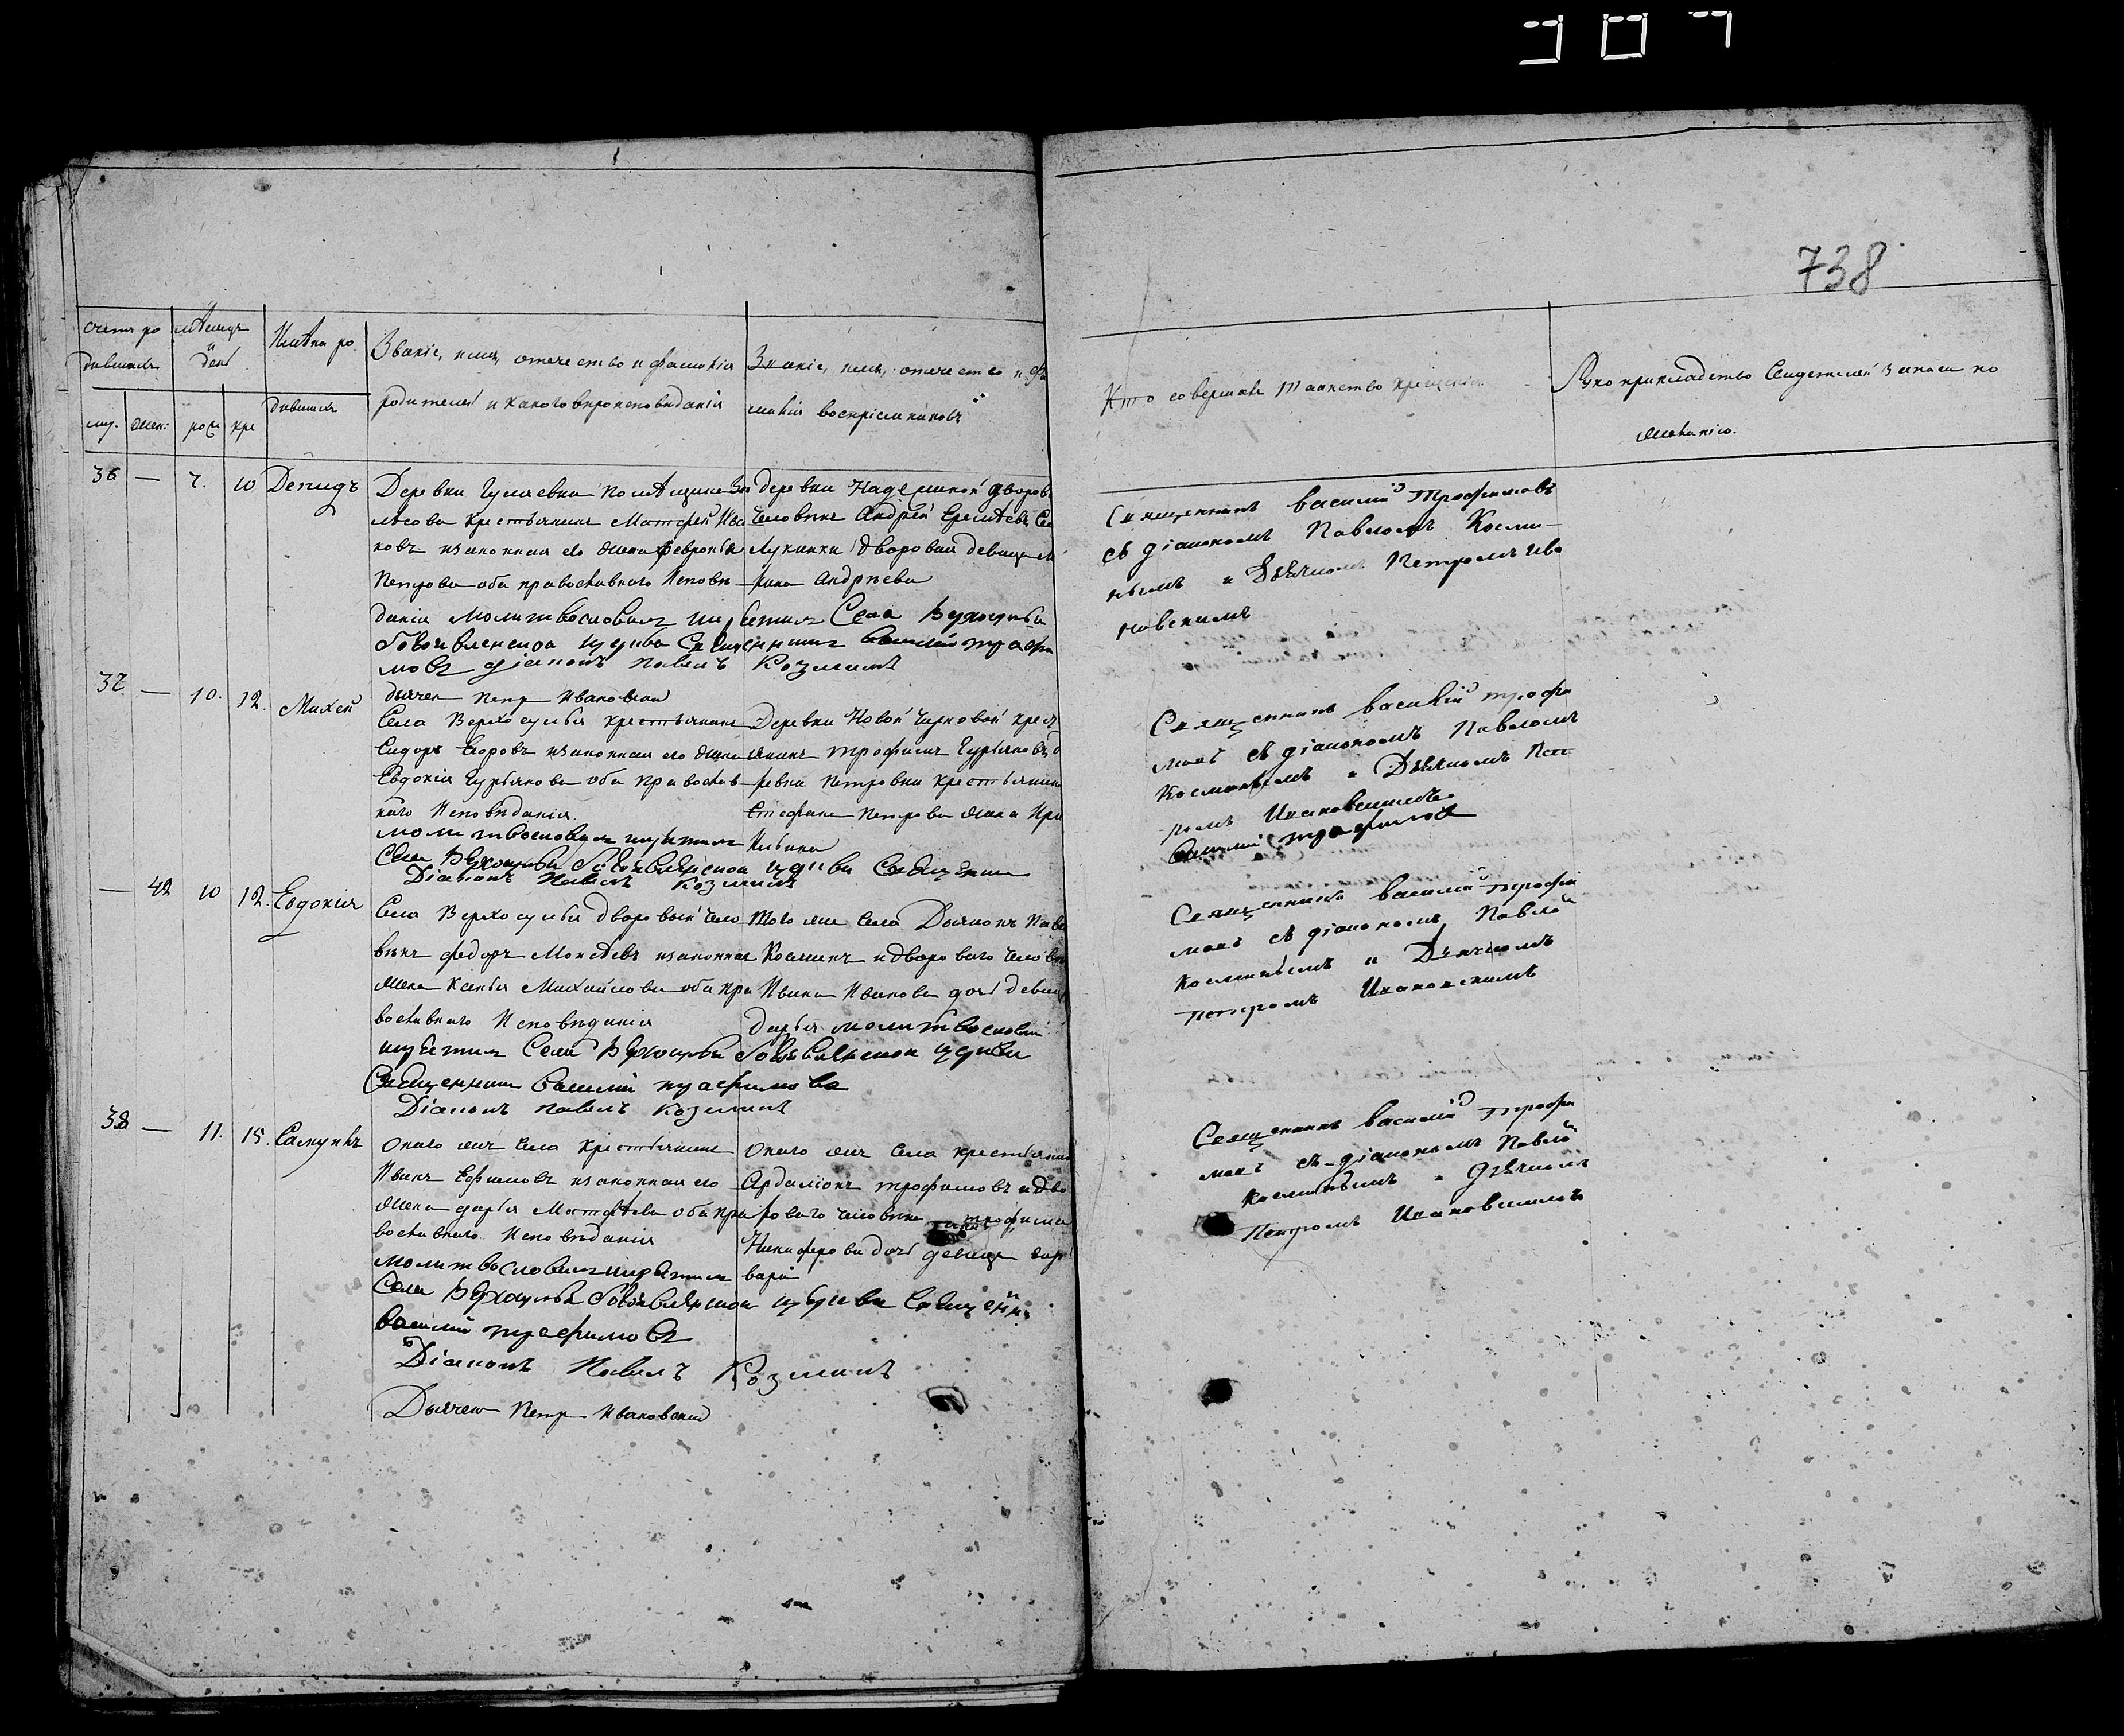 307
738
Счетъ ро
дившихся
му. жен:
мѣсяцъ
и
день
рож кре
Имѣна ро
дившихся
Званіе, имя, отечество и фамилія
родителей и какого вѣроисповѣданія
Званіе, имя, отечество и фа
милія воспріемниковъ
Кто совершалъ таинство крещенія
Рукоприкладство свидетелей записи по
желанію.
36 — 7. 10 Демидъ
Деревни помѣщика
крестьянинъ Матфей Ива
новъ изаконная его жена Февронья
Петрова оба православнаго Исповѣ
данія Молитвословилъ и крѣстилъ Села Верхоцубья
Богоявленской церкви Священникъ Василій Трофи
мовъ діаконъ Павелъ Козминъ
дьячек Петр Ивановскій
деревни дворов
человѣкъ Андрей
дворовая девица
Андрѣева
Священникъ Василій Трофимовъ
съ діакономъ Павломъ Косми-
нымъ и Дьячкомъ Петромъ Ива
новскимъ
37 — 10. 12. Михей
Села крестьянинъ
Сидоръ изаконная его жена
Евдокія Гурьянова оба Православ
наго Исповѣданія.
молитвословилъ и крѣстилъ
Села Богоявленской церкви Священник
Діаконъ Павелъ Козминъ
Деревни Новой крест
янинъ Трофимъ Гурьяновъ, д
ревни Петровки крестьянина
Стефана Петрова жена Ири
Священникъ Василій Трофи
мовъ съ діакономъ Павломъ
Косминымъ и Дьячкомъ Пет
ромъ Ивановскимъ.
Василій Трофимовъ
— 42 10 12. Евдокія
Села дворовый чело
вѣкъ Федоръ изаконная
жена Ксенья Михайлова оба пра
вославнаго Исповѣданія
крѣстилъ Села Богоявленской церкви
Священникъ Василій Трофимовъ
Діаконъ Павелъ Козминъ
Того же Села Дьяконъ Паве
Косминъ и дворового челов
Ивана Иванова дочь девица
Дарья молитвословил
Священникъ Василій Трофи
мовъ съ діакономъ Павло
Косминымъ и Дьячкомъ
Петромъ Ивановскимъ
38 — 11. 15. Самуилъ
Онаго жъ Села Крестьянинъ
Иванъ Ефимовъ изаконная его
жена Дарья Матфѣева оба пра
вославнаго Исповѣданія
молитвословилъ и крѣстилъ
Села Богоявленской церкви Священникъ
Василій Трофимовъ
Діаконъ Павелъ Козминъ
Дьячек Петр Ивановскій
Онаго жъ Села крестьянинъ
Ардаліонъ Трофимовъ и дво
рового человѣка
Никифорова дочь девица Вар
вара
Священникъ Василій Трофи
мовъ съ діакономъ Павло
Косминымъ и Дьячкомъ
Петромъ Ивановскимъ